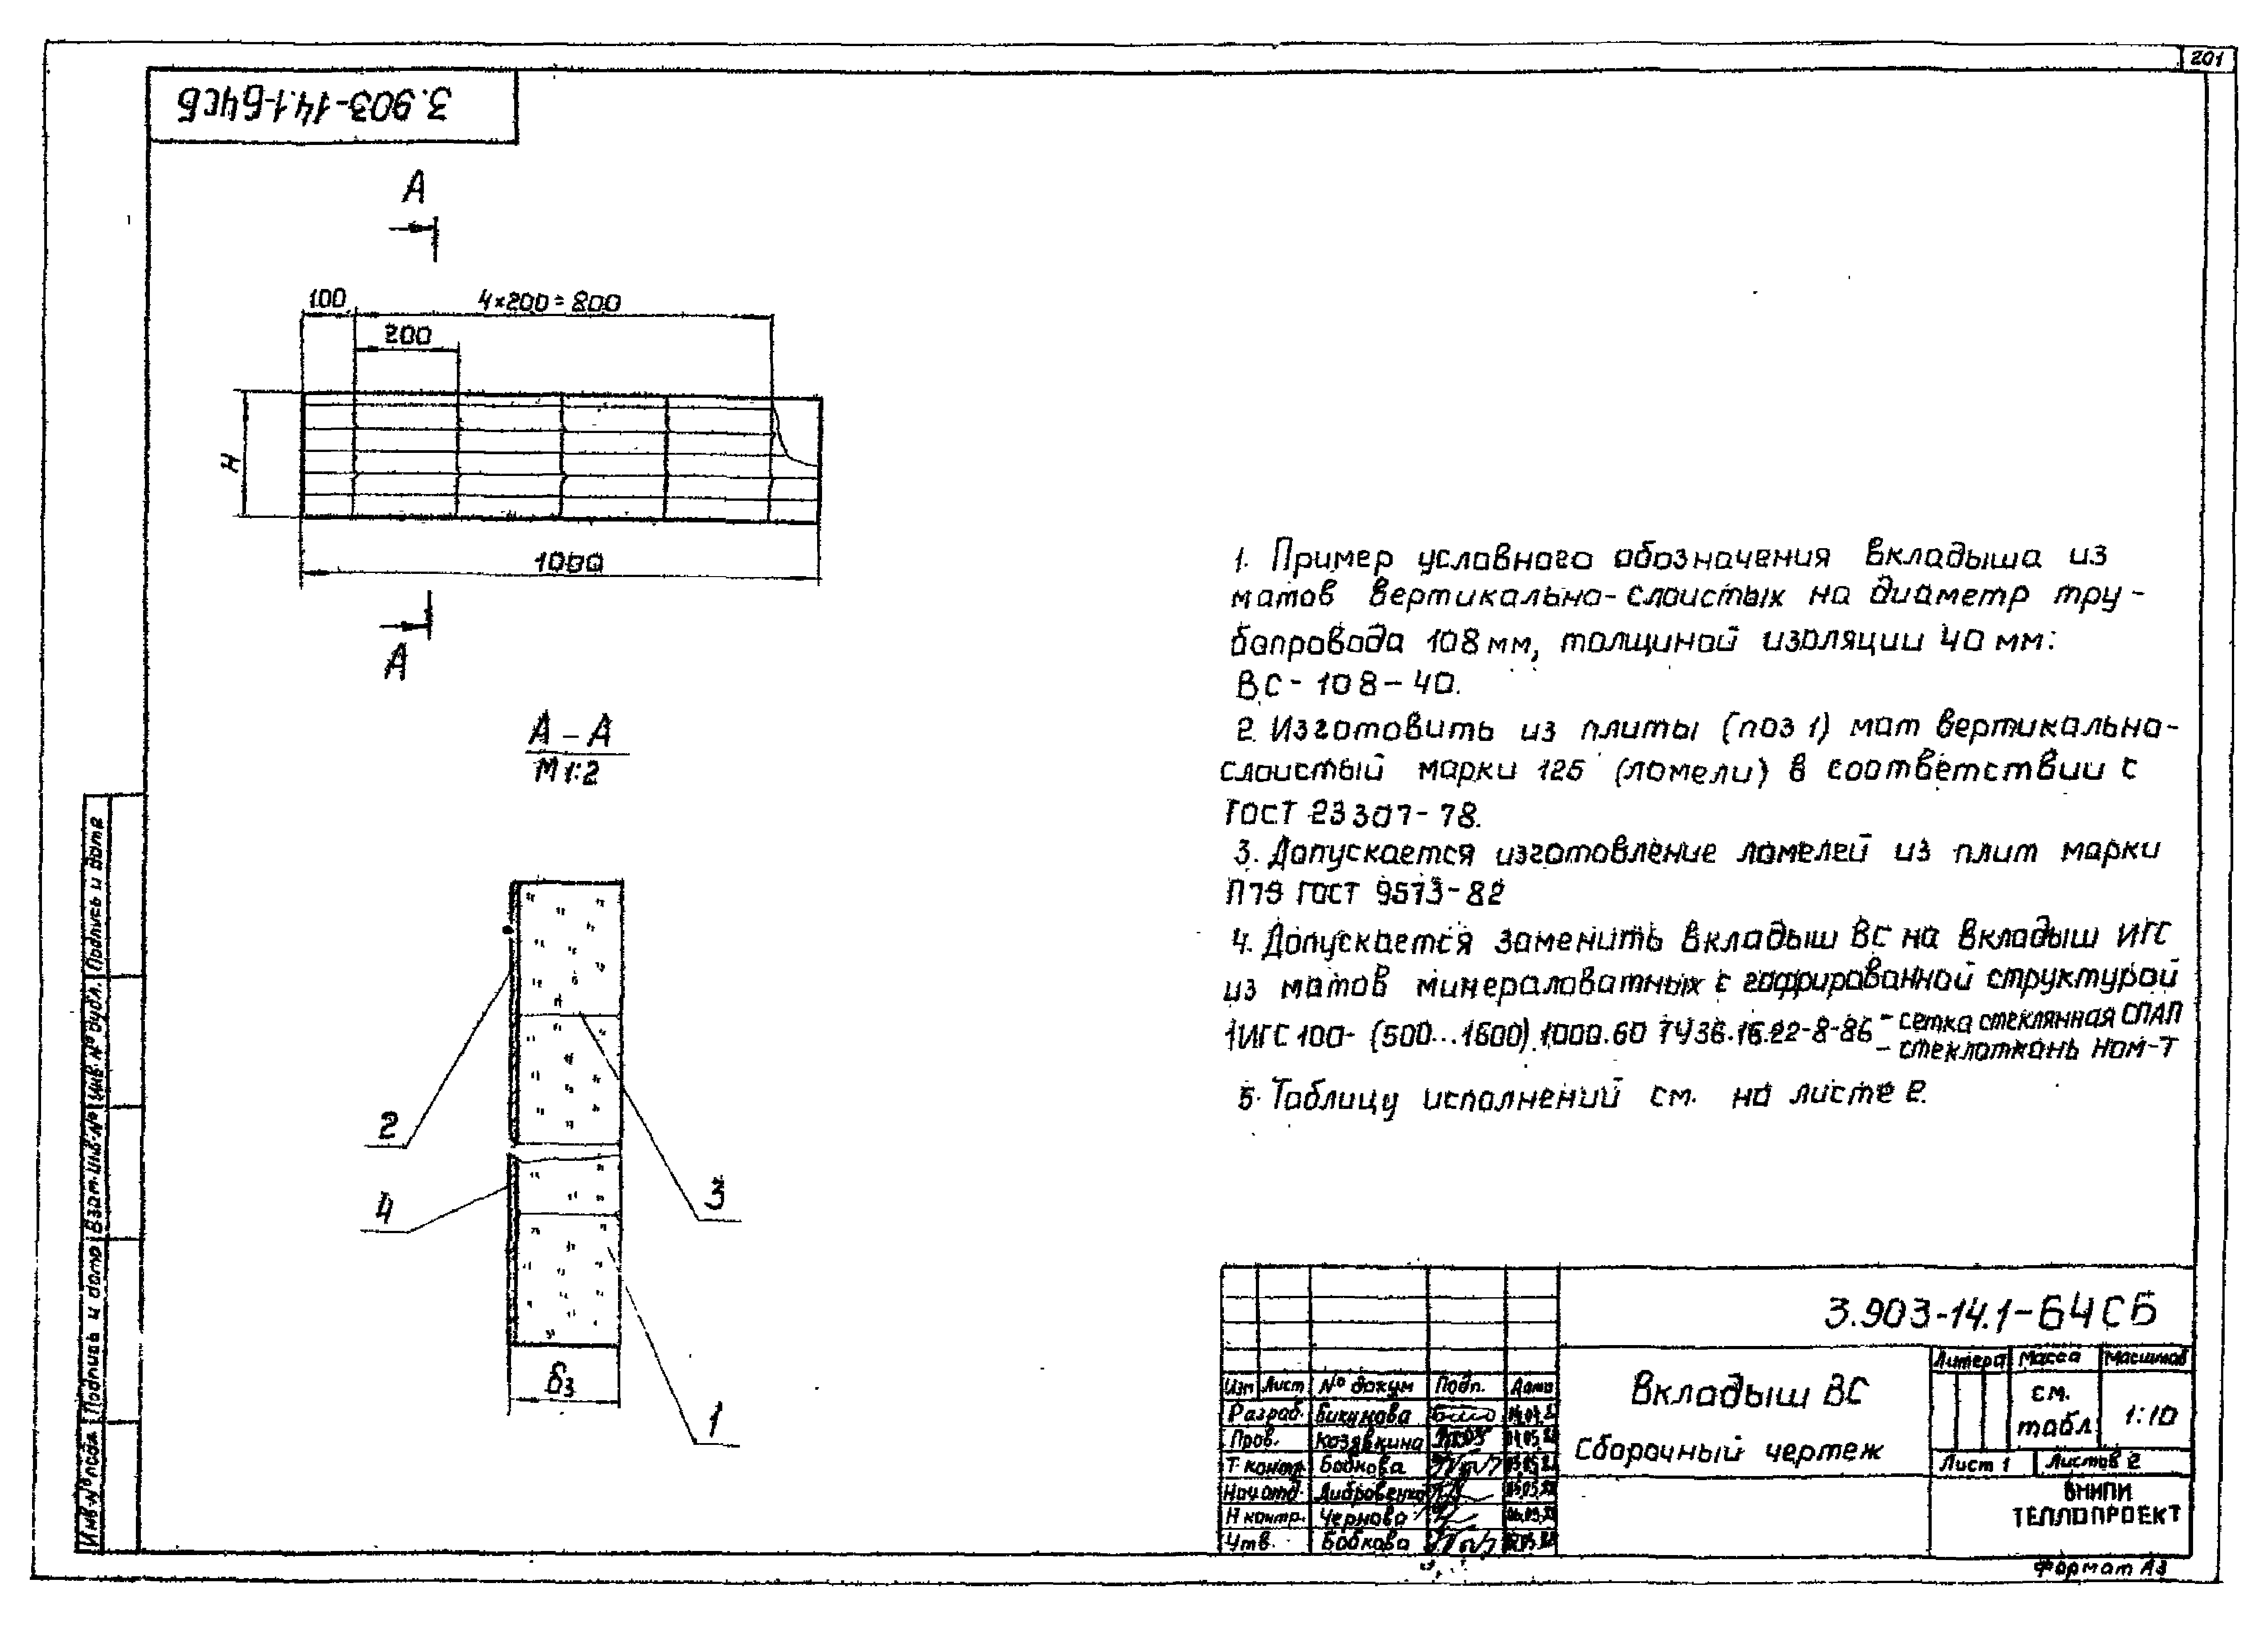 201
3.903-14.1-64СБ
А
100
4×200=800
200
Н
1000
А
А - А
М 1:2
2
4
3
δ3
1
1. Пример условного обозначения вкладыша из
матов вертикально-слоистых на диаметр тру-
бопровода 108 мм, толщиной изоляции 40 мм:
ВС - 108 - 40.
2. Изготовить из плиты (поз 1) мат вертикально-
слоистый марки 125 (ломели) в соответствии с
ГОСТ 23307-78.
3. Допускается изготовление ламелей из плит марки
П75 ГОСТ 9573-82
4. Допускается заменить вкладыш ВС на вкладыш ИГС
из матов минераловатных с гофрированной структурой
1ИГС 100- (500...1600).1000.60 ТУ36.16.22-8-86 - сетка стеклянная СПАП
- стеклоткань Ном-Т
5. Таблицу исполнений см. на листе 2.
3.903-14.1-64СБ
Изм Лист № докум Подп. Дата
Разраб. Бикунова
Пров. Козявкина
Т контр. Бобкова
Нач отд. Дибровенко
Н контр. Чернова
Утв. Бобкова
Вкладыш ВС
Сборочный чертеж
Литера Масса Масштаб
см.
табл
1:10
Лист 1 Листов 2
ВНИПИ
ТЕПЛОПРОЕКТ
Формат А3
Инв. № подл. Подпись и дата Взам. инв. № Инв. № дубл. Подпись и дата